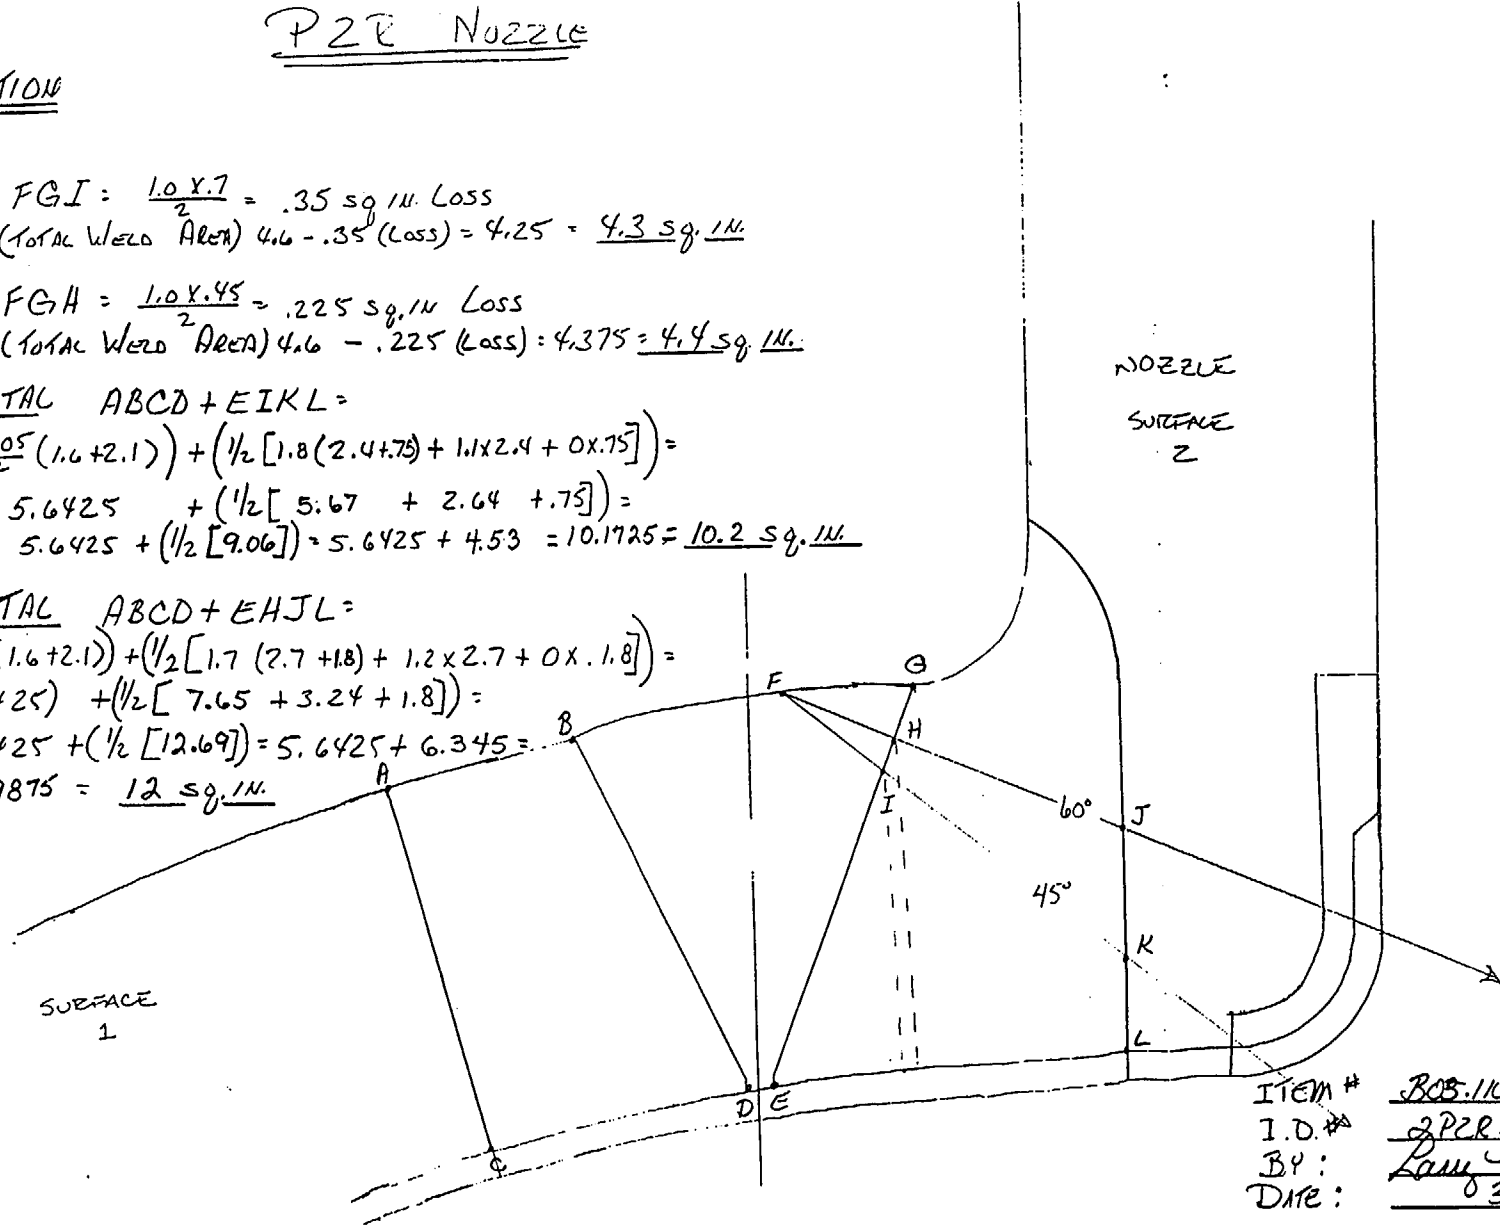 PZR NOZZLE
TION
FGI: 1.0 X .7 / 2 = .35 sq IN. LOSS
(TOTAL WELD AREA) 4.6 - .35 (LOSS) = 4.25 = 4.3 sq. IN.
FGH = 1.0 X .45 / 2 = .225 sq. IN LOSS
(TOTAL WELD AREA) 4.6 - .225 (LOSS) = 4.375 = 4.4 sq. IN.
TAL ABCD + EIKL =
05 (1.6 + 2.1)) + (1/2 [1.8 (2.4+.75) + 1.1x2.4 + 0x.75]) =
5.6425 + (1/2 [ 5.67 + 2.64 + .75]) =
5.6425 + (1/2 [9.06]) = 5.6425 + 4.53 = 10.1725 = 10.2 sq. IN.
TAL ABCD + EHJL =
1.6 + 2.1)) + (1/2 [1.7 (2.7 + 1.8) + 1.2 x 2.7 + 0 x .1.8]) =
25) + (1/2 [ 7.65 + 3.24 + 1.8]) =
25 + (1/2 [12.69]) = 5.6425 + 6.345 =
9875 = 12 sq. IN.
NOZZLE
SURFACE
2
A
B
F
G
H
I
60°
J
45°
K
L
SURFACE
1
C
D
E
ITEM #
I.D. # 2PZR
BY: Larry
DATE: 3